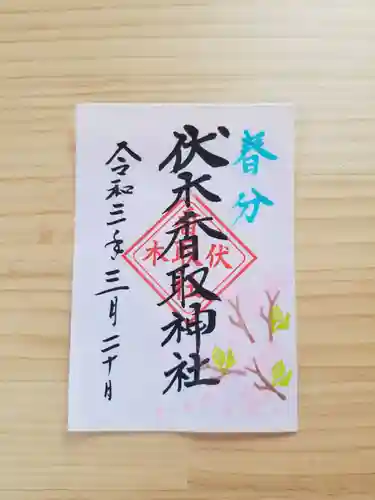 春分
伏木香取神社
令和三年三月二十日